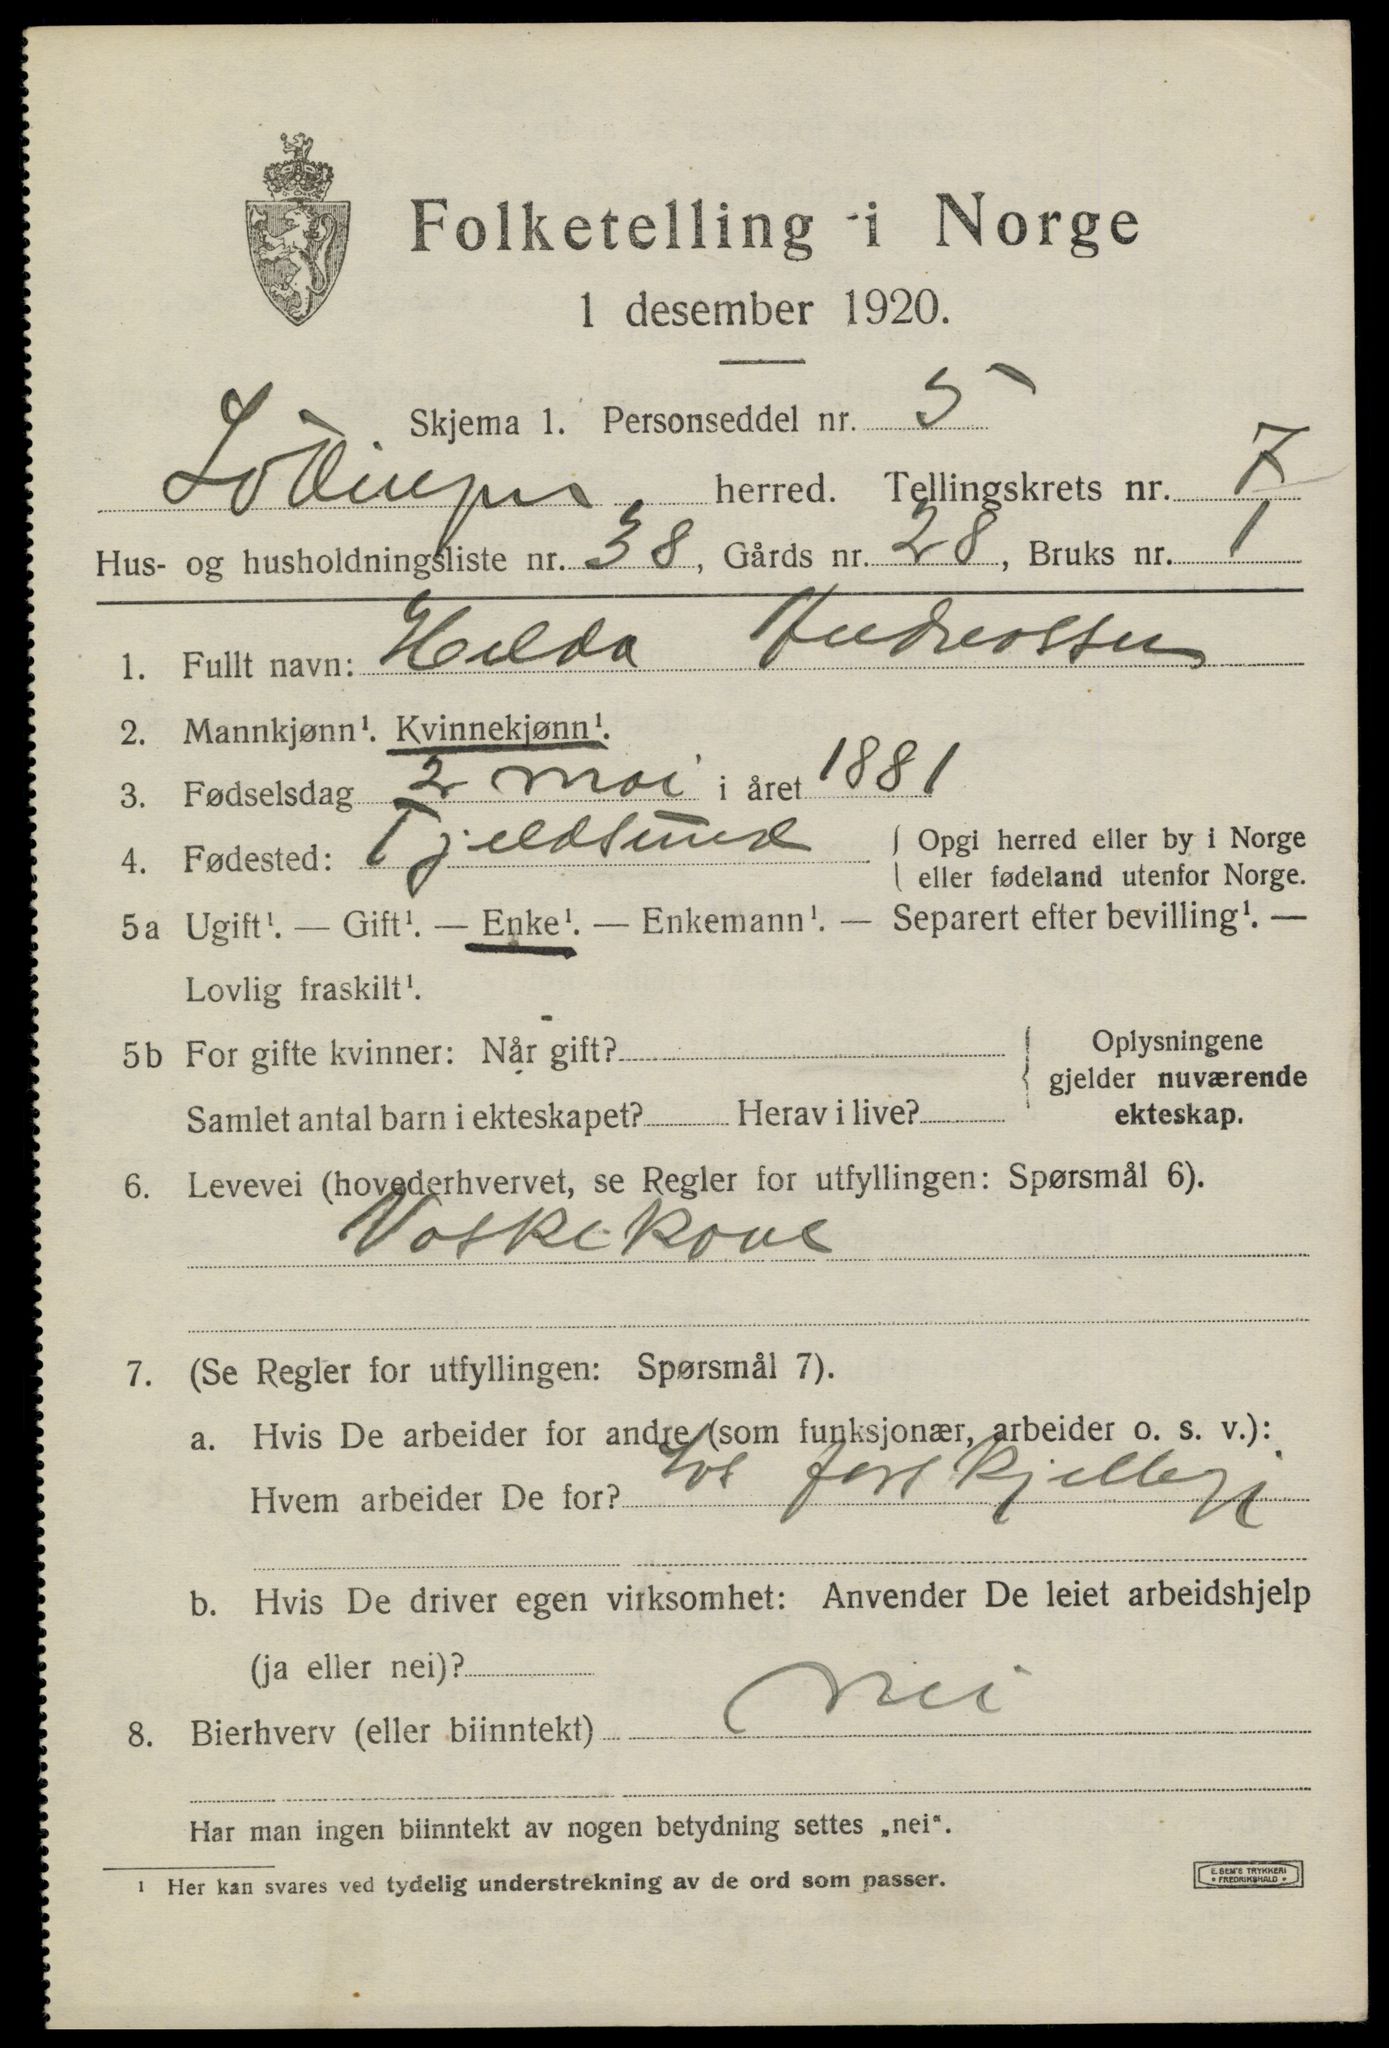 Folketelling i Norge
1 desember 1920.
Skjema 1. Personseddel nr. 5
Lödingen herred. Tellingskrets nr. 7
Hus- og husholdningsliste nr. 38, Gårds nr. 28, Bruks nr. 1
1. Fullt navn: Helda Andreassen
2. Mannkjønn¹. Kvinnekjønn¹.
3. Fødselsdag 2 mai i året 1881
4. Fødested: Tjeldsund { Opgi herred eller by i Norge
eller fødeland utenfor Norge.
5a Ugift¹. — Gift¹. — Enke¹. — Enkemann¹. — Separert efter bevilling¹. —
Lovlig fraskilt¹.
5b For gifte kvinner: Når gift?
Samlet antal barn i ekteskapet? Herav i live?
Oplysningene
gjelder nuværende
ekteskap.
6. Levevei (hovederhvervet, se Regler for utfyllingen: Spørsmål 6).
Vaskekone
7. (Se Regler for utfyllingen: Spørsmål 7).
a. Hvis De arbeider for andre (som funksjonær, arbeider o. s. v.):
Hvem arbeider De for? forskjellige
b. Hvis De driver egen virksomhet: Anvender De leiet arbeidshjelp
(ja eller nei)?
8. Bierhverv (eller biinntekt) nei
Har man ingen biinntekt av nogen betydning settes „nei“.
¹ Her kan svares ved tydelig understrekning av de ord som passer.
E. SEM'S TRYKKERI
• FREDRIKSHALD •